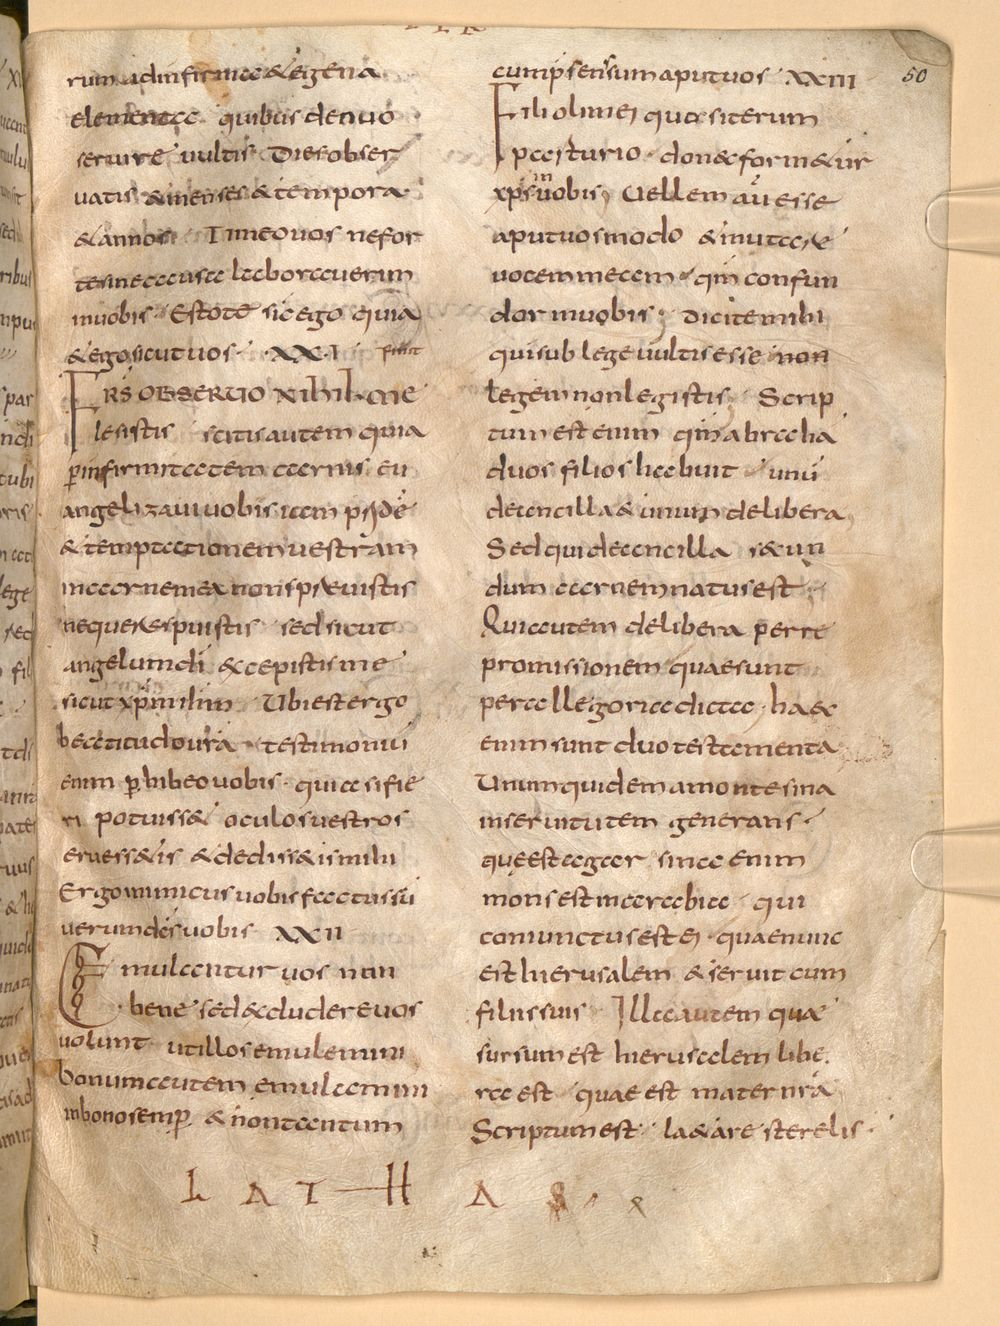 50
rum adinfirma & egena
elementa quibus denuo
seruire uultis Dies obser
uatis & menses & tempora
& annos Timeo uos nefor
te sine causa laborauerim
inuobis Estote sic ego quia
& ego sicut uos XXI finit
FRS OBSECRO NIHIL me
lesistis scitis autem quia
p infirmitatem carnis eu
angelizaui uobis iam p&
& temptationem uestram
incarnem ex non spreuistis
neque respuistis sed sicut
angelum di excepistis me
sicut xpm ihm Ubi est ergo
beatitudo ura testimoniu
enim phibeo uobis quia si fie
ri potuiss& oculos uestros
eruess&is & dediss&is mihi
Ergo inimicus uobis factus su
uerum dicens uobis XXII
Emulantur uos non
bene sed excludere uos
uolunt ut illos emulemini
bonum autem emulamini
inbono semp & non tantum
cum psens sum aput uos XXIII
Filioli mei quos iterum
parturio donec form&ur
xps in uobis Uellem au esse
aput uos modo & mutare
uocem meam qm confun
dor inuobis Dicite mihi
qui sub lege uultis esse non
legem non legistis Scrip
tum est enim qm abraha
duos filios habuit unu
de ancilla & unum de libera
Sed qui de ancilla secun
dum carnem natus est
Qui autem de libera per re
promissionem quae sunt
per allegoria dicta haec
enim sunt duo testamenta
Unum quidem a monte sina
inseruitutem generans
que est agar sina enim
mons est inarabia qui
coniunctus est ei quae nunc
est hierusalem & seruit cum
filiis suis Illa autem quae
sursum est hierusalem libe
ra est quae est mater nra
Scriptum est la&are sterelis
L A T H A